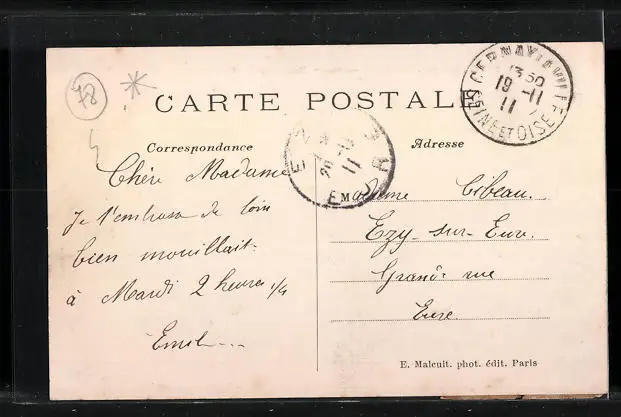 78
CARTE POSTALE
CERNAY-LA-VILLE
13 50
19 -11
11
SEINE ET OISE
Correspondance
Adresse
Chère Madame
Je t'embrasse de loin
bien mouillait.
à Mardi 2 heures 1/4
Emile
EZY
20 -11
11
EURE
Madame Cibeau.
Ezy-sur-Eure.
Grande rue
Eure.
E. Malcuit. phot. édit. Paris